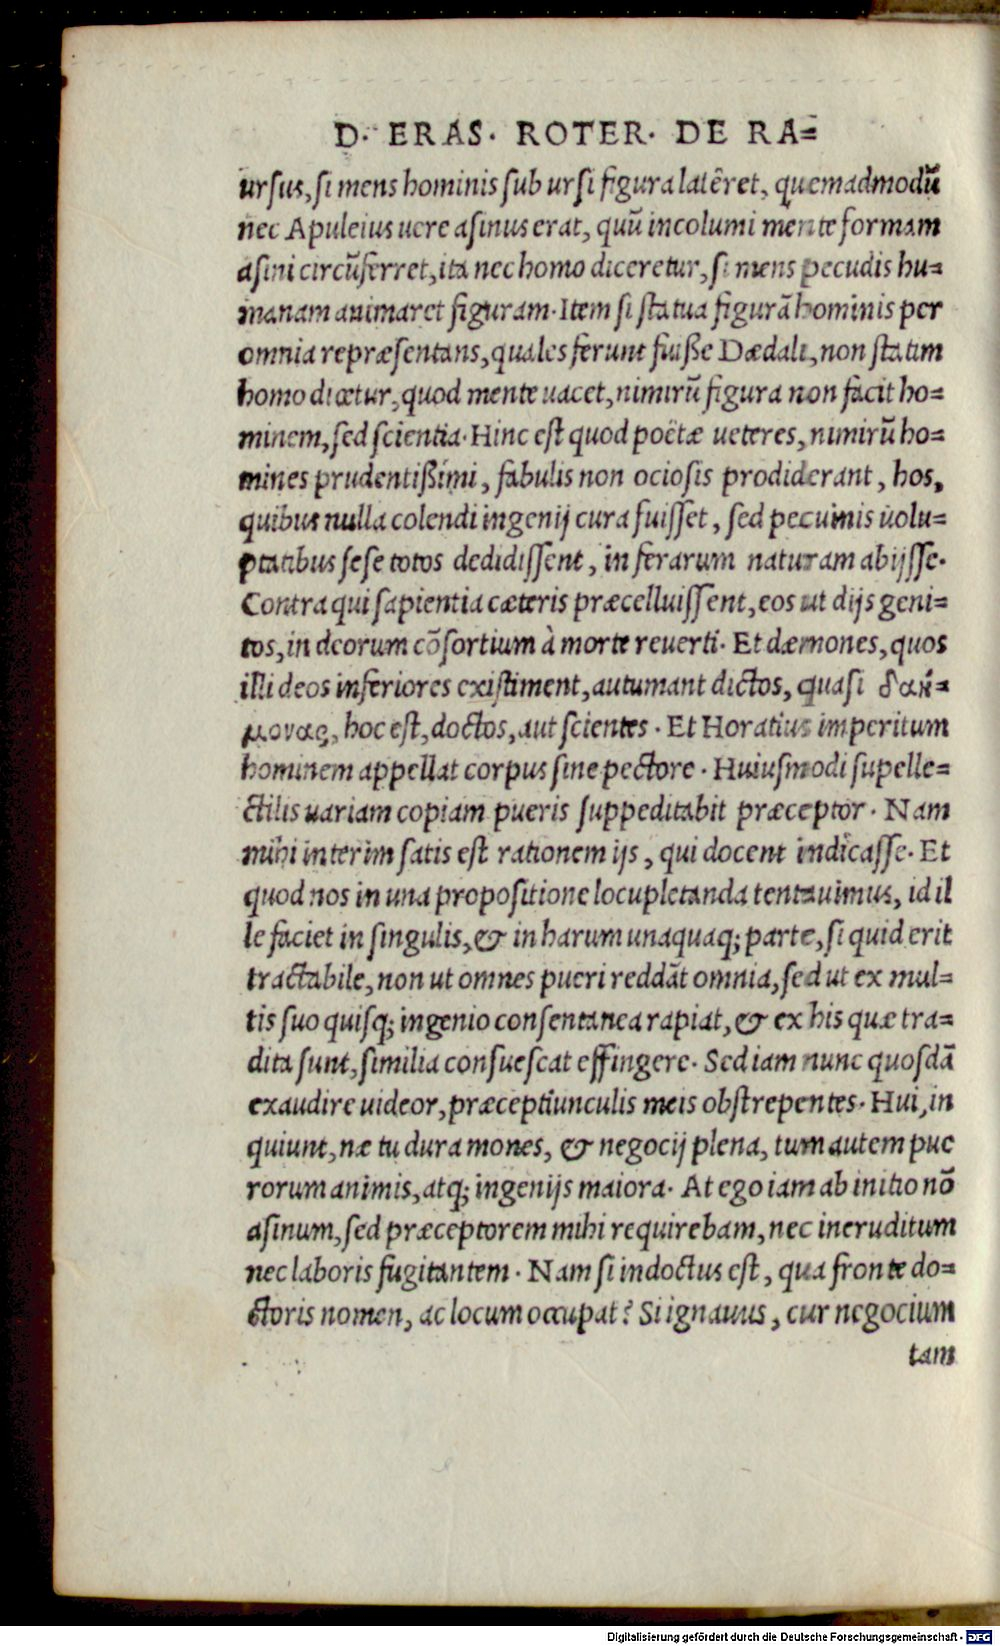 D. ERAS. ROTER. DE RA=
ursus, si mens hominis sub ursi figura latêret, quemadmodũ
nec Apuleius uere asinus erat, quũ incolumi mente formam
asini circũferret, ita nec homo diceretur, si mens pecudis hu=
manam animaret figuram. Item si statua figurã hominis per
omnia repræsentans, quales ferunt fuiße Dædali, non statim
homo dicetur, quod mente uacet, nimirũ figura non facit ho=
minem, sed scientia. Hinc est quod poëtæ ueteres, nimirũ ho=
mines prudentißimi, fabulis non ociosis prodiderant, hos,
quibus nulla colendi ingenij cura fuisset, sed pecuinis uolu=
ptatibus sese totos dedidissent, in ferarum naturam abijsse.
Contra qui sapientia cæteris præcelluissent, eos ut dijs geni=
tos, in deorum cõsortium à morte reuerti. Et dæmones, quos
illi deos inferiores existiment, autumant dictos, quasi δαή=
μονας, hoc est, doctos, aut scientes. Et Horatius imperitum
hominem appellat corpus sine pectore. Huiusmodi supelle=
ctilis uariam copiam pueris suppeditabit præceptor. Nam
mihi interim satis est rationem ijs, qui docent indicasse. Et
quod nos in una propositione locupletanda tentauimus, id il
le faciet in singulis, & in harum unaquaq; parte, si quid erit
tractabile, non ut omnes pueri reddãt omnia, sed ut ex mul=
tis suo quisq; ingenio consentanea rapiat, & ex his quæ tra=
dita sunt, similia consuescat effingere. Sed iam nunc quosdã
exaudire uideor, præceptiunculis meis obstrepentes. Hui, in
quiunt, næ tu dura mones, & negocij plena, tum autem pue
rorum animis, atq; ingenijs maiora. At ego iam ab initio nõ
asinum, sed præceptorem mihi requirebam, nec ineruditum
nec laboris fugitantem. Nam si indoctus est, qua fronte do=
ctoris nomen, ac locum occupat? Si ignauus, cur negocium
tam
Digitalisierung gefördert durch die Deutsche Forschungsgemeinschaft - DFG